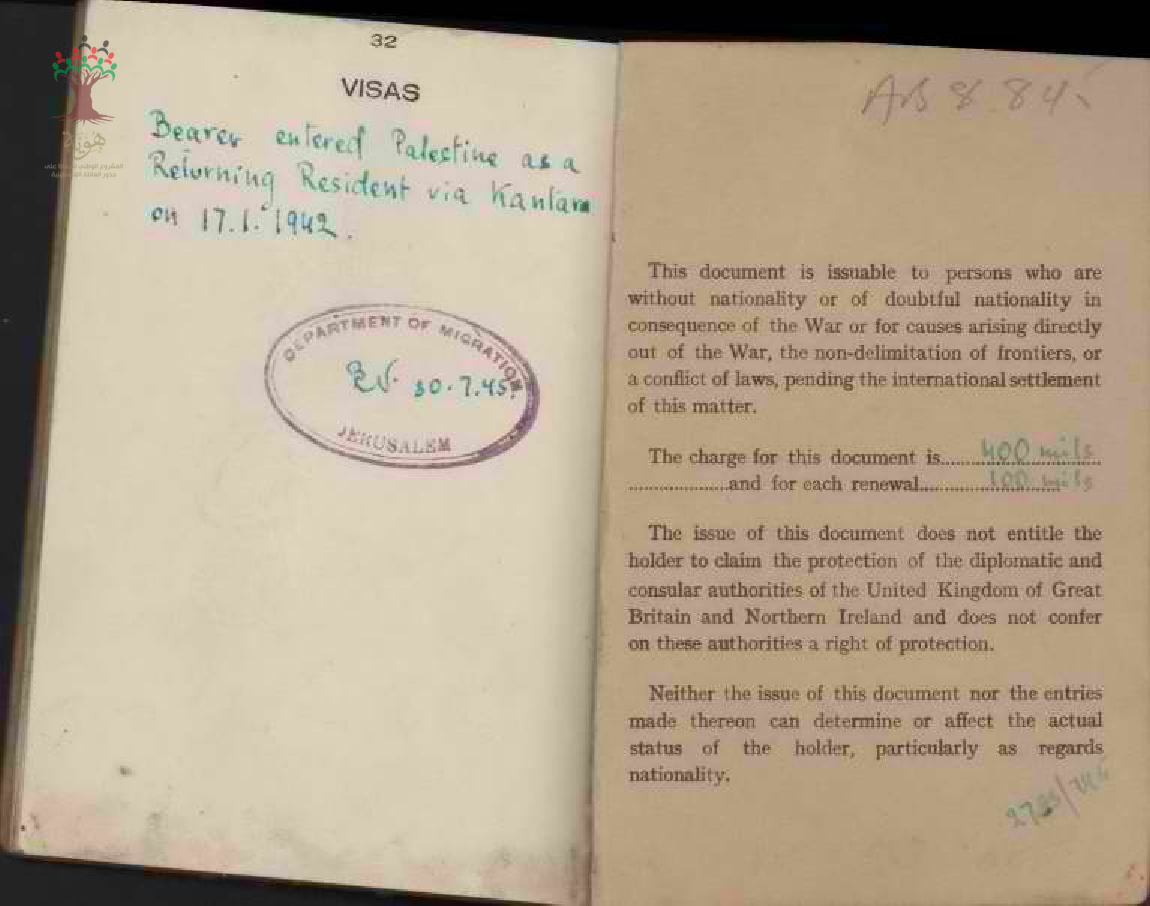 32
VISAS
Bearer entered Palestine as a
Returning Resident via Kantara
on 17.1.1942.
DEPARTMENT OF MIGRATION
30.7.45.
JERUSALEM
هوية
This document is issuable to persons who are
without nationality or of doubtful nationality in
consequence of the War or for causes arising directly
out of the War, the non-delimitation of frontiers, or
a conflict of laws, pending the international settlement
of this matter.
The charge for this document is 400 mils
and for each renewal 100 mils
The issue of this document does not entitle the
holder to claim the protection of the diplomatic and
consular authorities of the United Kingdom of Great
Britain and Northern Ireland and does not confer
on these authorities a right of protection.
Neither the issue of this document nor the entries
made thereon can determine or affect the actual
status of the holder, particularly as regards
nationality.